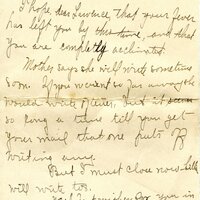 I hope, dear Lawrence, that your fever
has left you by this time, and that
you are completly acclimated
Mother says she will write sometime
soon. If you weren't so far away she
would write oftener, but it seems
so long a time till you get
your mail that one puts off
writing
But I must close now.
will write too.
for you in